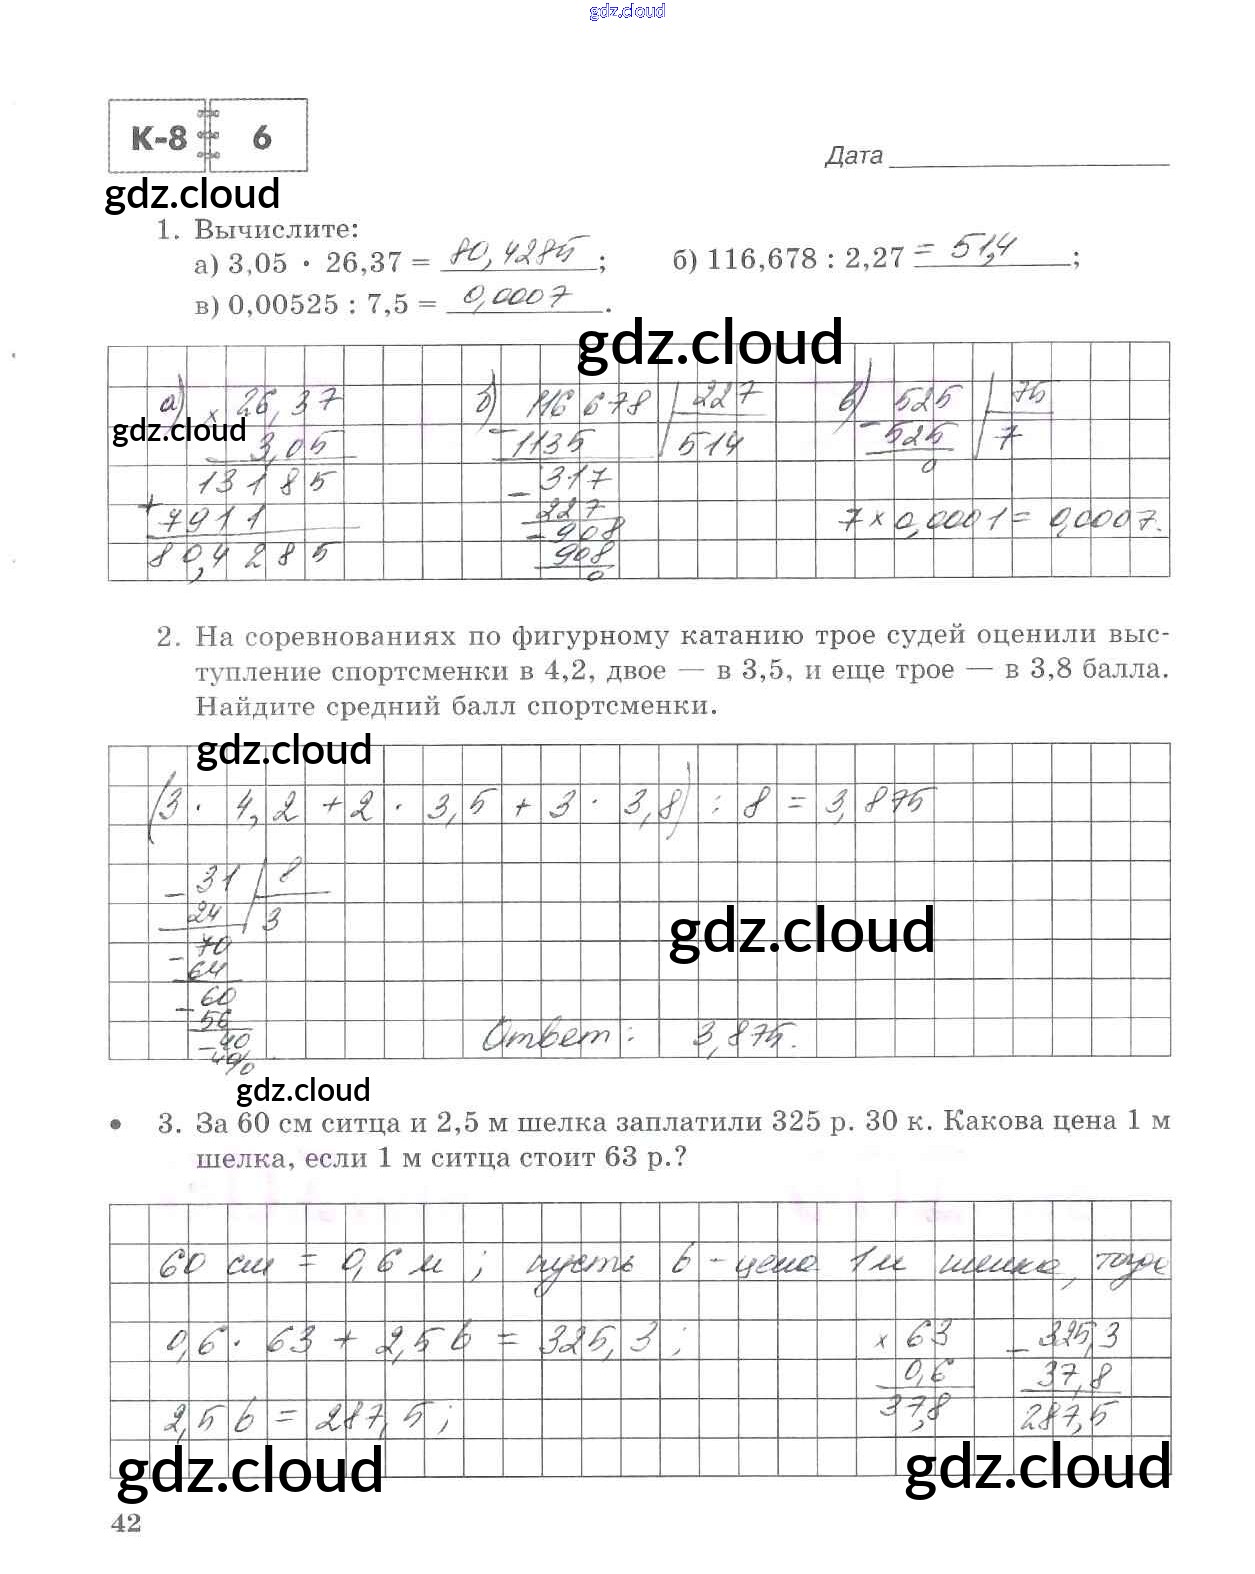 gdz.cloud
К-8 6
Дата
gdz.cloud
1. Вычислите:
а) 3,05 · 26,37 = 80,4285; б) 116,678 : 2,27 = 51,4;
в) 0,00525 : 7,5 = 0,0007.
gdz.cloud
а) × 26,37 б) 116678 227 в) 525 75
gdz.cloud
3,05 − 1135 514 − 525 7
13185 − 317 0
+ 7911 227 7 × 0,0001 = 0,0007.
80,4285 − 908
908
0
2. На соревнованиях по фигурному катанию трое судей оценили выс-
тупление спортсменки в 4,2, двое — в 3,5, и еще трое — в 3,8 балла.
Найдите средний балл спортсменки.
gdz.cloud
(3 · 4,2 + 2 · 3,5 + 3 · 3,8) : 8 = 3,875
− 31 8
24 3
gdz.cloud
− 70
64
− 60
56
− 40
40
0
Ответ: 3,875.
gdz.cloud
• 3. За 60 см ситца и 2,5 м шелка заплатили 325 р. 30 к. Какова цена 1 м
шелка, если 1 м ситца стоит 63 р.?
60 см = 0,6 м; пусть b - цена 1м шелка, тогда
0,6 · 63 + 2,5 b = 325,3; × 63 − 325,3
0,6 37,8
2,5 b = 287,5; 37,8 287,5
gdz.cloud gdz.cloud
42